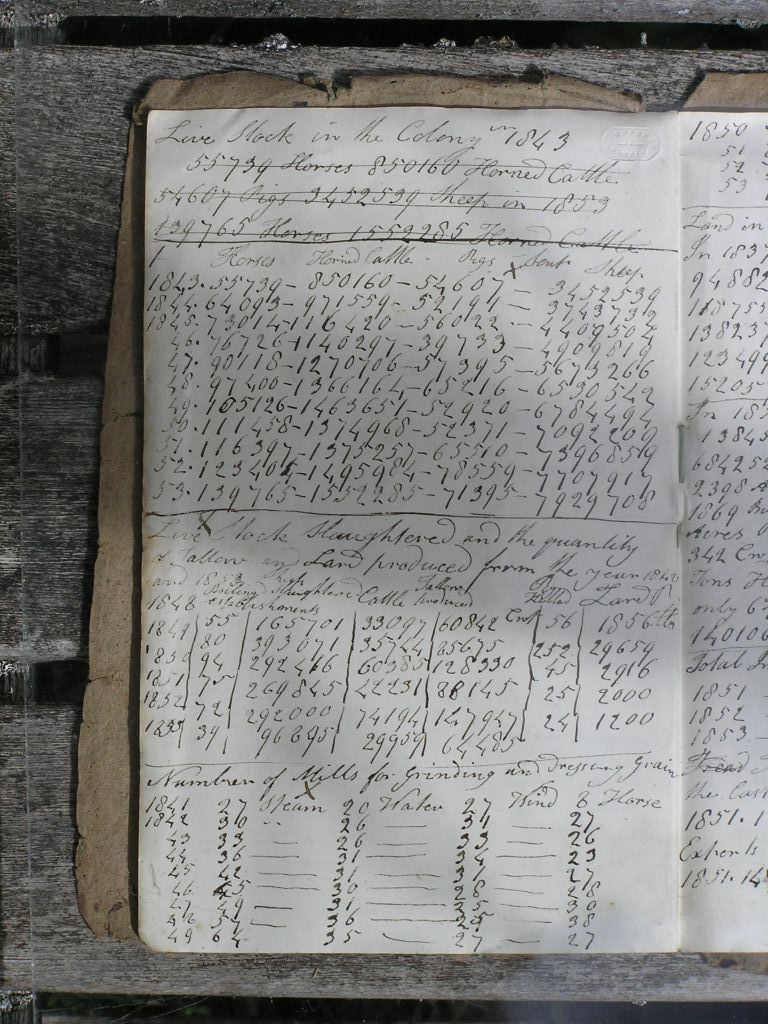 Live Stock in the Colony in 1843
55739 Horses 850160 Horned Cattle
54607 Pigs 3452539 Sheep in 1853
139765 Horses 1552285 Horned Cattle
Horses Horned Cattle Pigs Sheep
1843. 55739 - 850160 - 54607 - 3452539
1844. 64093 - 971559 - 52191 - 3743732
1845. 73014 - 1116420 - 56022 - 4409504
46. 76726 - 1140297 - 39733 - 4909819
47. 90118 - 1270706 - 57395 - 5673266
48. 97400 - 1366164 - 65216 - 6530542
49. 105126 - 1463651 - 52920 - 6784494
50. 111458 - 1374968 - 52371 - 7092209
51. 116397 - 1375257 - 65510 - 7396859
52. 123404 - 1495984 - 78559 - 7707917
53. 139765 - 1552285 - 71395 - 7929708
Live Stock Slaughtered and the quantity
of Tallow and Lard produced from the year 1848
and 1853
Boiling establishments Sheep Slaughtered Cattle Tallow produced Cwt Pigs Killed Lard lbs
1848 55 165701 33097 60842 56 1856
1849 80 393071 35744 85675 252 29659
1850 94 292416 60385 128330 45 2916
1851 75 269845 42231 88145 25 2000
1852 72 292000 74194 147947 24 1200
1853 39 96695 29959 64485
Number of Mills for Grinding and Dressing Grain
1841 27 Steam 20 Water 27 Wind 8 Horse
1842 30 .. 26 — 31 — 27
43 33 — 26 — 33 — 26
44 36 — 31 — 34 — 23
45 42 — 31 — 31 — 27
46 45 — 30 — 28 — 28
47 49 — 31 — 25 — 30
48 51 — 36 — 25 — 38
49 64 35 — 27 — 27
1850
51
52
53
Land in
In 1837
94882
118755
138237
123499
15205
In 185
13845
684252
2398
1869
Acres
342
Tons
only 6
140106
Total
1851 —
1852
1853 —
the
1851. 1
Exports
1851. 14